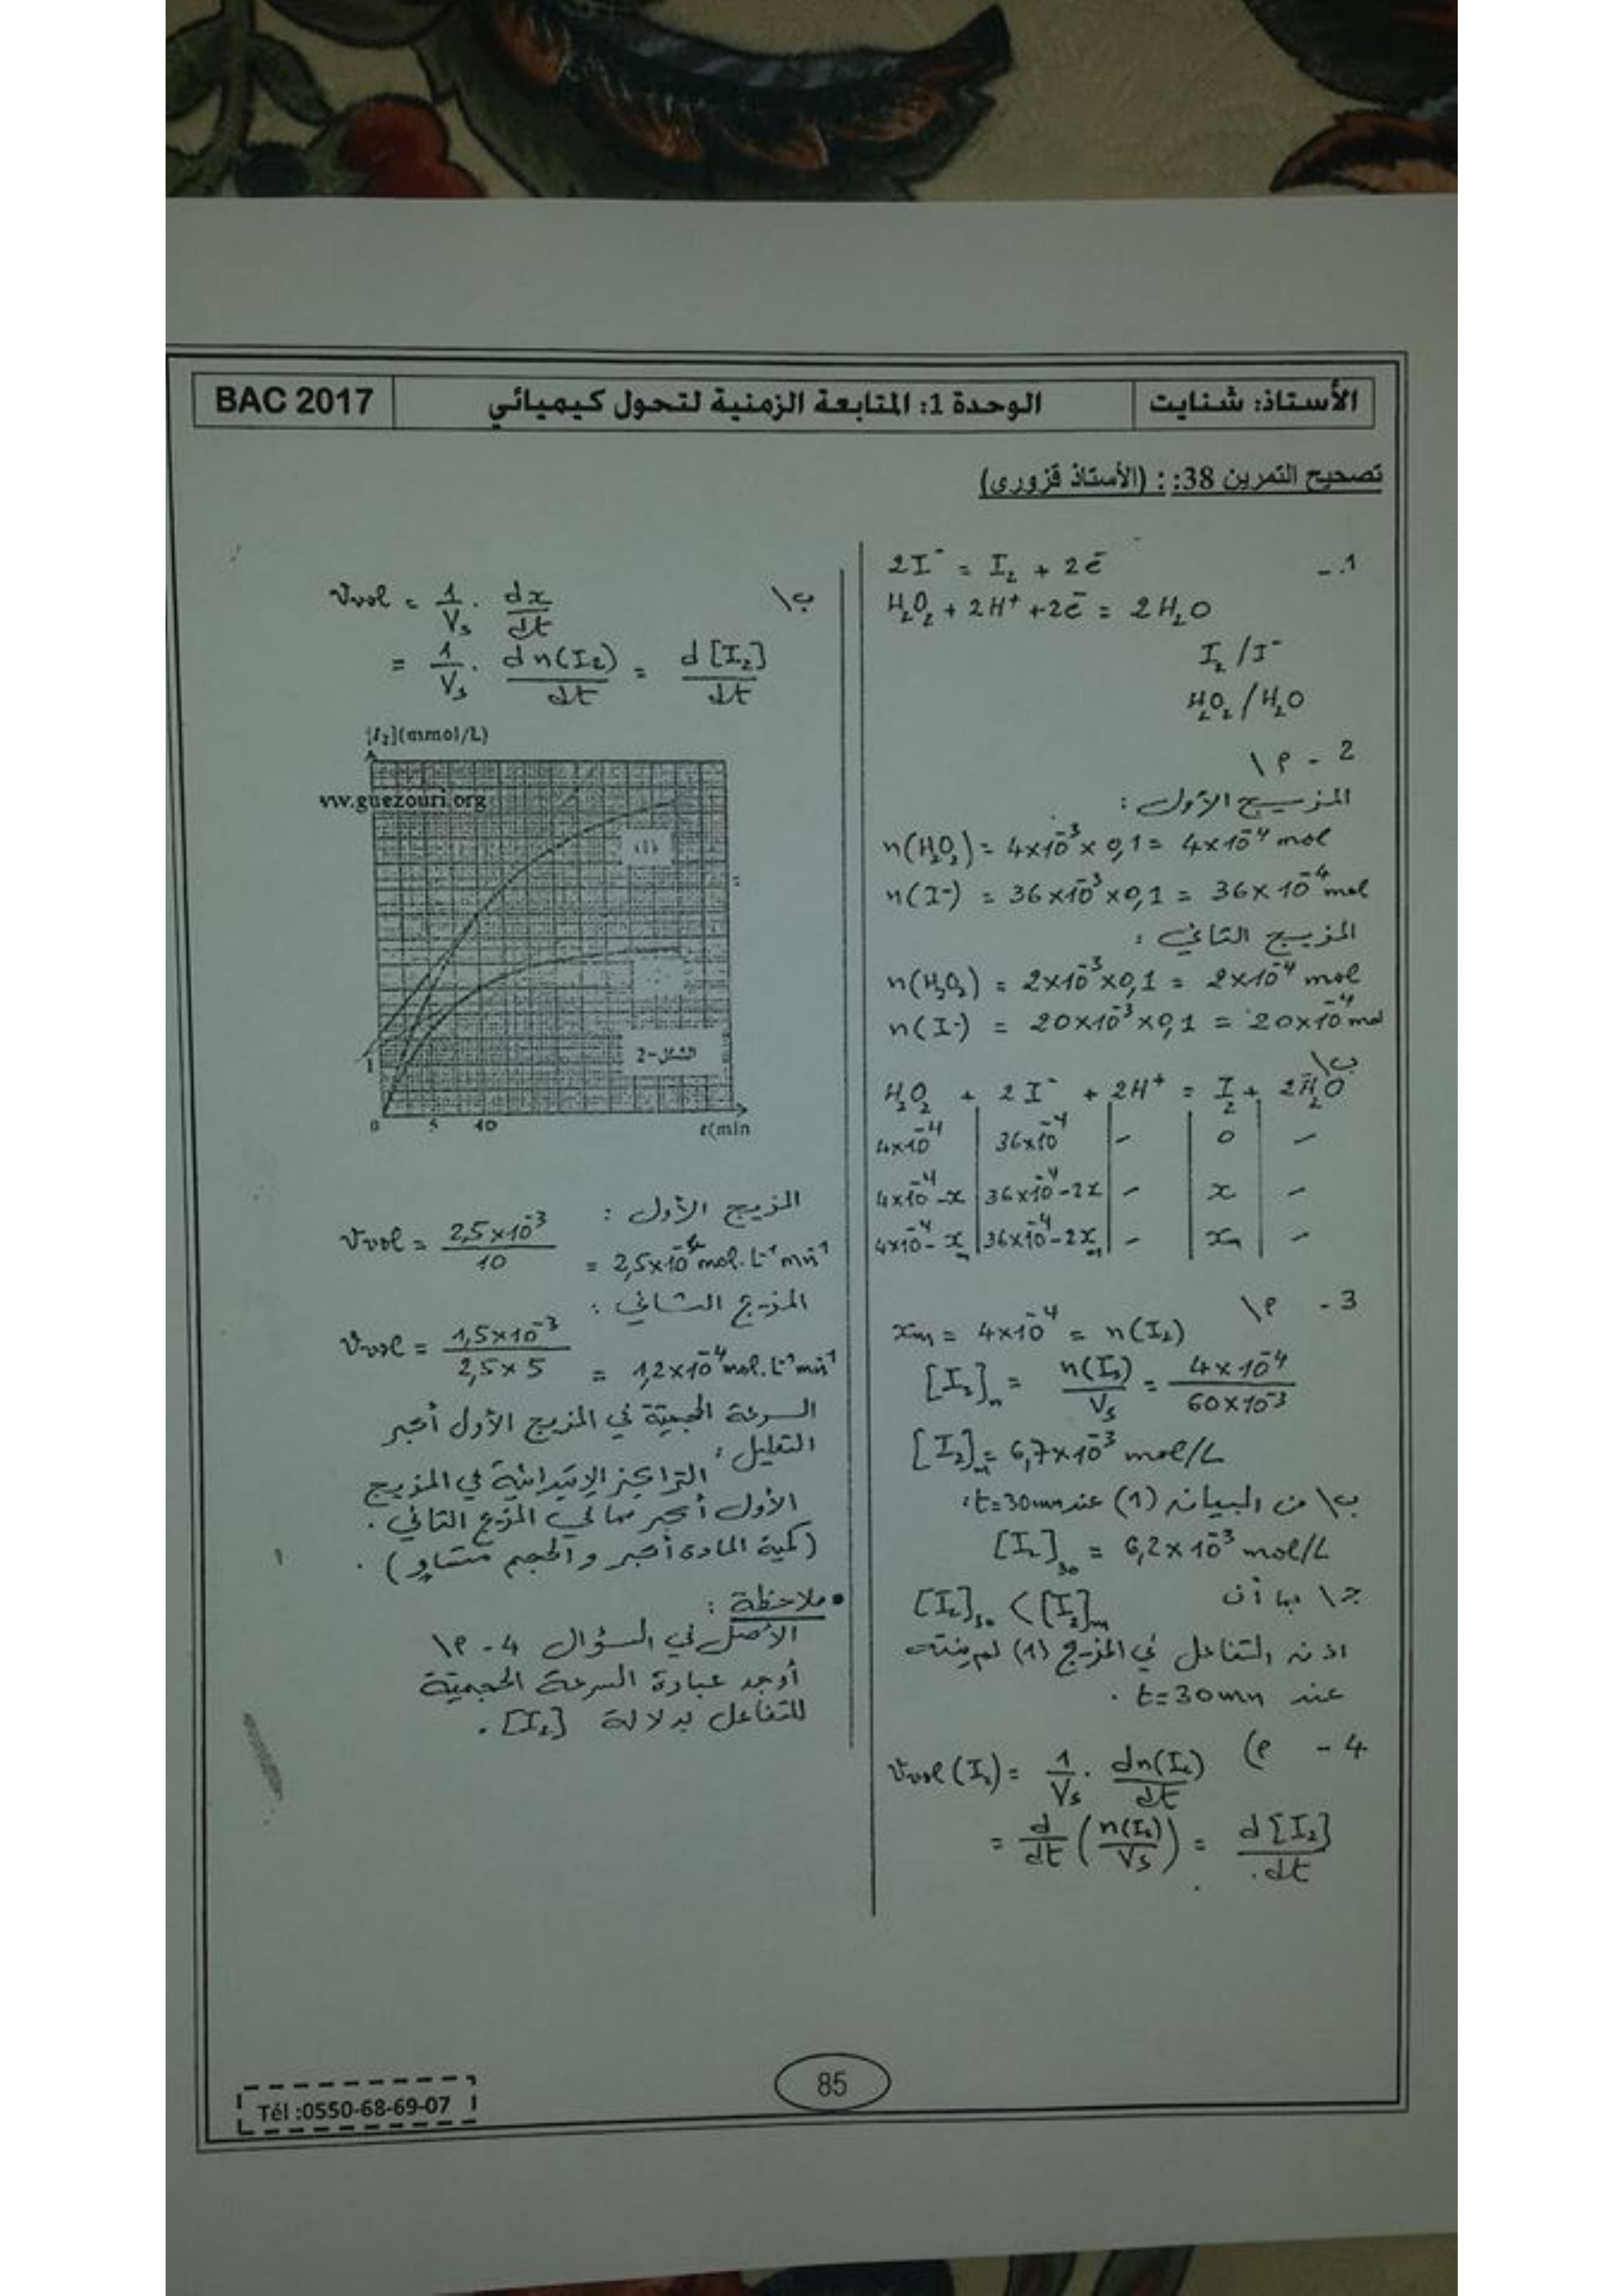 الأستاذ: شنايت
الوحدة 1: المتابعة الزمنية لتحول كيميائي
BAC 2017
تصحيح التمرين 38: : (الأستاذ قزوري)
1. -
2I⁻ = I₂ + 2e⁻
H₂O₂ + 2H⁺ + 2e⁻ = 2H₂O
I₂ / I⁻
H₂O₂ / H₂O
2 - أ\
المزيج الأول :
n(H₂O₂) = 4×10⁻³ × 0,1 = 4×10⁻⁴ mol
n(I⁻) = 36×10⁻³×0,1 = 36×10⁻⁴ mol
المزيج الثاني :
n(H₂O₂) = 2×10⁻³×0,1 = 2×10⁻⁴ mol
n(I⁻) = 20×10⁻³×0,1 = 20×10⁻⁴ mol
ب\
H₂O₂ + 2I⁻ + 2H⁺ = I₂ + 2H₂O
4×10⁻⁴ | 36×10⁻⁴ | - | 0 | -
4×10⁻⁴-x | 36×10⁻⁴-2x | - | x | -
4×10⁻⁴-xₘ | 36×10⁻⁴-2xₘ | - | xₘ | -
3 - أ\
xₘ = 4×10⁻⁴ = n(I₂)
[I₂]ₘ = n(I₂)/Vs = 4×10⁻⁴/60×10⁻³
[I₂]ₘ = 6,7×10⁻³ mol/L
ب\ من البيان (1) عند t=30mn :
[I₂]₃₀ = 6,2×10⁻³ mol/L
ج\ بما أن [I₂]₃₀ < [I₂]ₘ
اذن التفاعل في المزيج (1) لم ينته
عند t=30mn .
4 - أ)
Vvol(I₂) = 1/Vs . dn(I₂)/dt
= d/dt (n(I₂)/Vs) = d[I₂]/dt
ب\
Vvol = 1/Vs . dx/dt
= 1/Vs . dn(I₂)/dt = d[I₂]/dt
[I₂](mmol/L)
www.guezouri.org
(1)
الشكل-2
1
0 5 10 t(min
المزيج الأول :
Vvol = 2,5×10⁻³/10 = 2,5×10⁻⁴ mol.L⁻¹mn⁻¹
المزيج الثاني :
Vvol = 1,5×10⁻³/2,5×5 = 1,2×10⁻⁴ mol.L⁻¹mn⁻¹
السرعة الحجمية في المزيج الأول أكبر
التعليل :
التراكيز الإبتدائية في المزيج
الأول أكبر مما في المزيج الثاني .
(كمية المادة أكبر والحجم متساو) .
• ملاحظة :
الأصل في السؤال 4 - أ\
أوجد عبارة السرعة الحجمية
للتفاعل بدلالة [I₂] .
85
Tél :0550-68-69-07